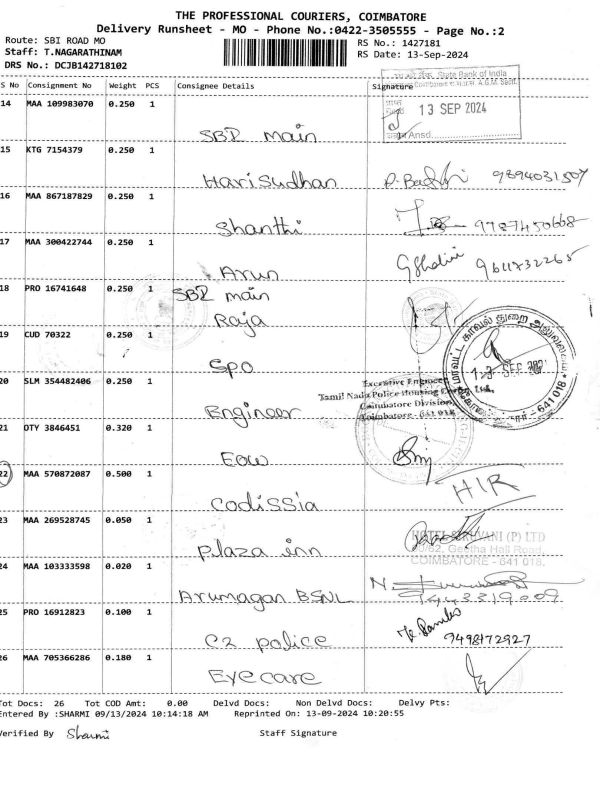 THE PROFESSIONAL COURIERS, COIMBATORE
Delivery Runsheet - MO - Phone No.:0422-3505555 - Page No.:2
Route: SBI ROAD MO
RS No.: 1427181
Staff: T.NAGARATHINAM
RS Date: 13-Sep-2024
DRS No.: DCJB142718102
S No Consignment No Weight PCS Consignee Details Signature
State Bank of India
13 SEP 2024
14 MAA 109983070 0.250 1
SBI main
15 KTG 7154379 0.250 1
Harisudhan 9894031507
16 MAA 867187829 0.250 1
Shanthi 9787450668
17 MAA 300422744 0.250 1
Arun
18 PRO 16741648 0.250 1
SBI main
Raja
19 CUD 70322 0.250 1
Spo
20 SLM 354482406 0.250 1
Executive Engineer
Tamil Nadu Police Housing
Coimbatore Division
Coimbatore - 641 018
Engineer
21 OTY 3846451 0.320 1
Eow
22 MAA 570872087 0.500 1
Codissia HIR
23 MAA 269528745 0.050 1
Plaza inn
(P) LTD
Geetha Hall Road,
COIMBATORE - 641 018.
24 MAA 103333598 0.020 1
Arumagan BSNL
25 PRO 16912823 0.100 1
C2 police 9498172927
26 MAA 705366286 0.180 1
Eyecare
Tot Docs: 26 Tot COD Amt: 0.00 Delvd Docs: Non Delvd Docs: Delvy Pts:
Entered By :SHARMI 09/13/2024 10:14:18 AM Reprinted On: 13-09-2024 10:20:55
Verified By Sharmi Staff Signature